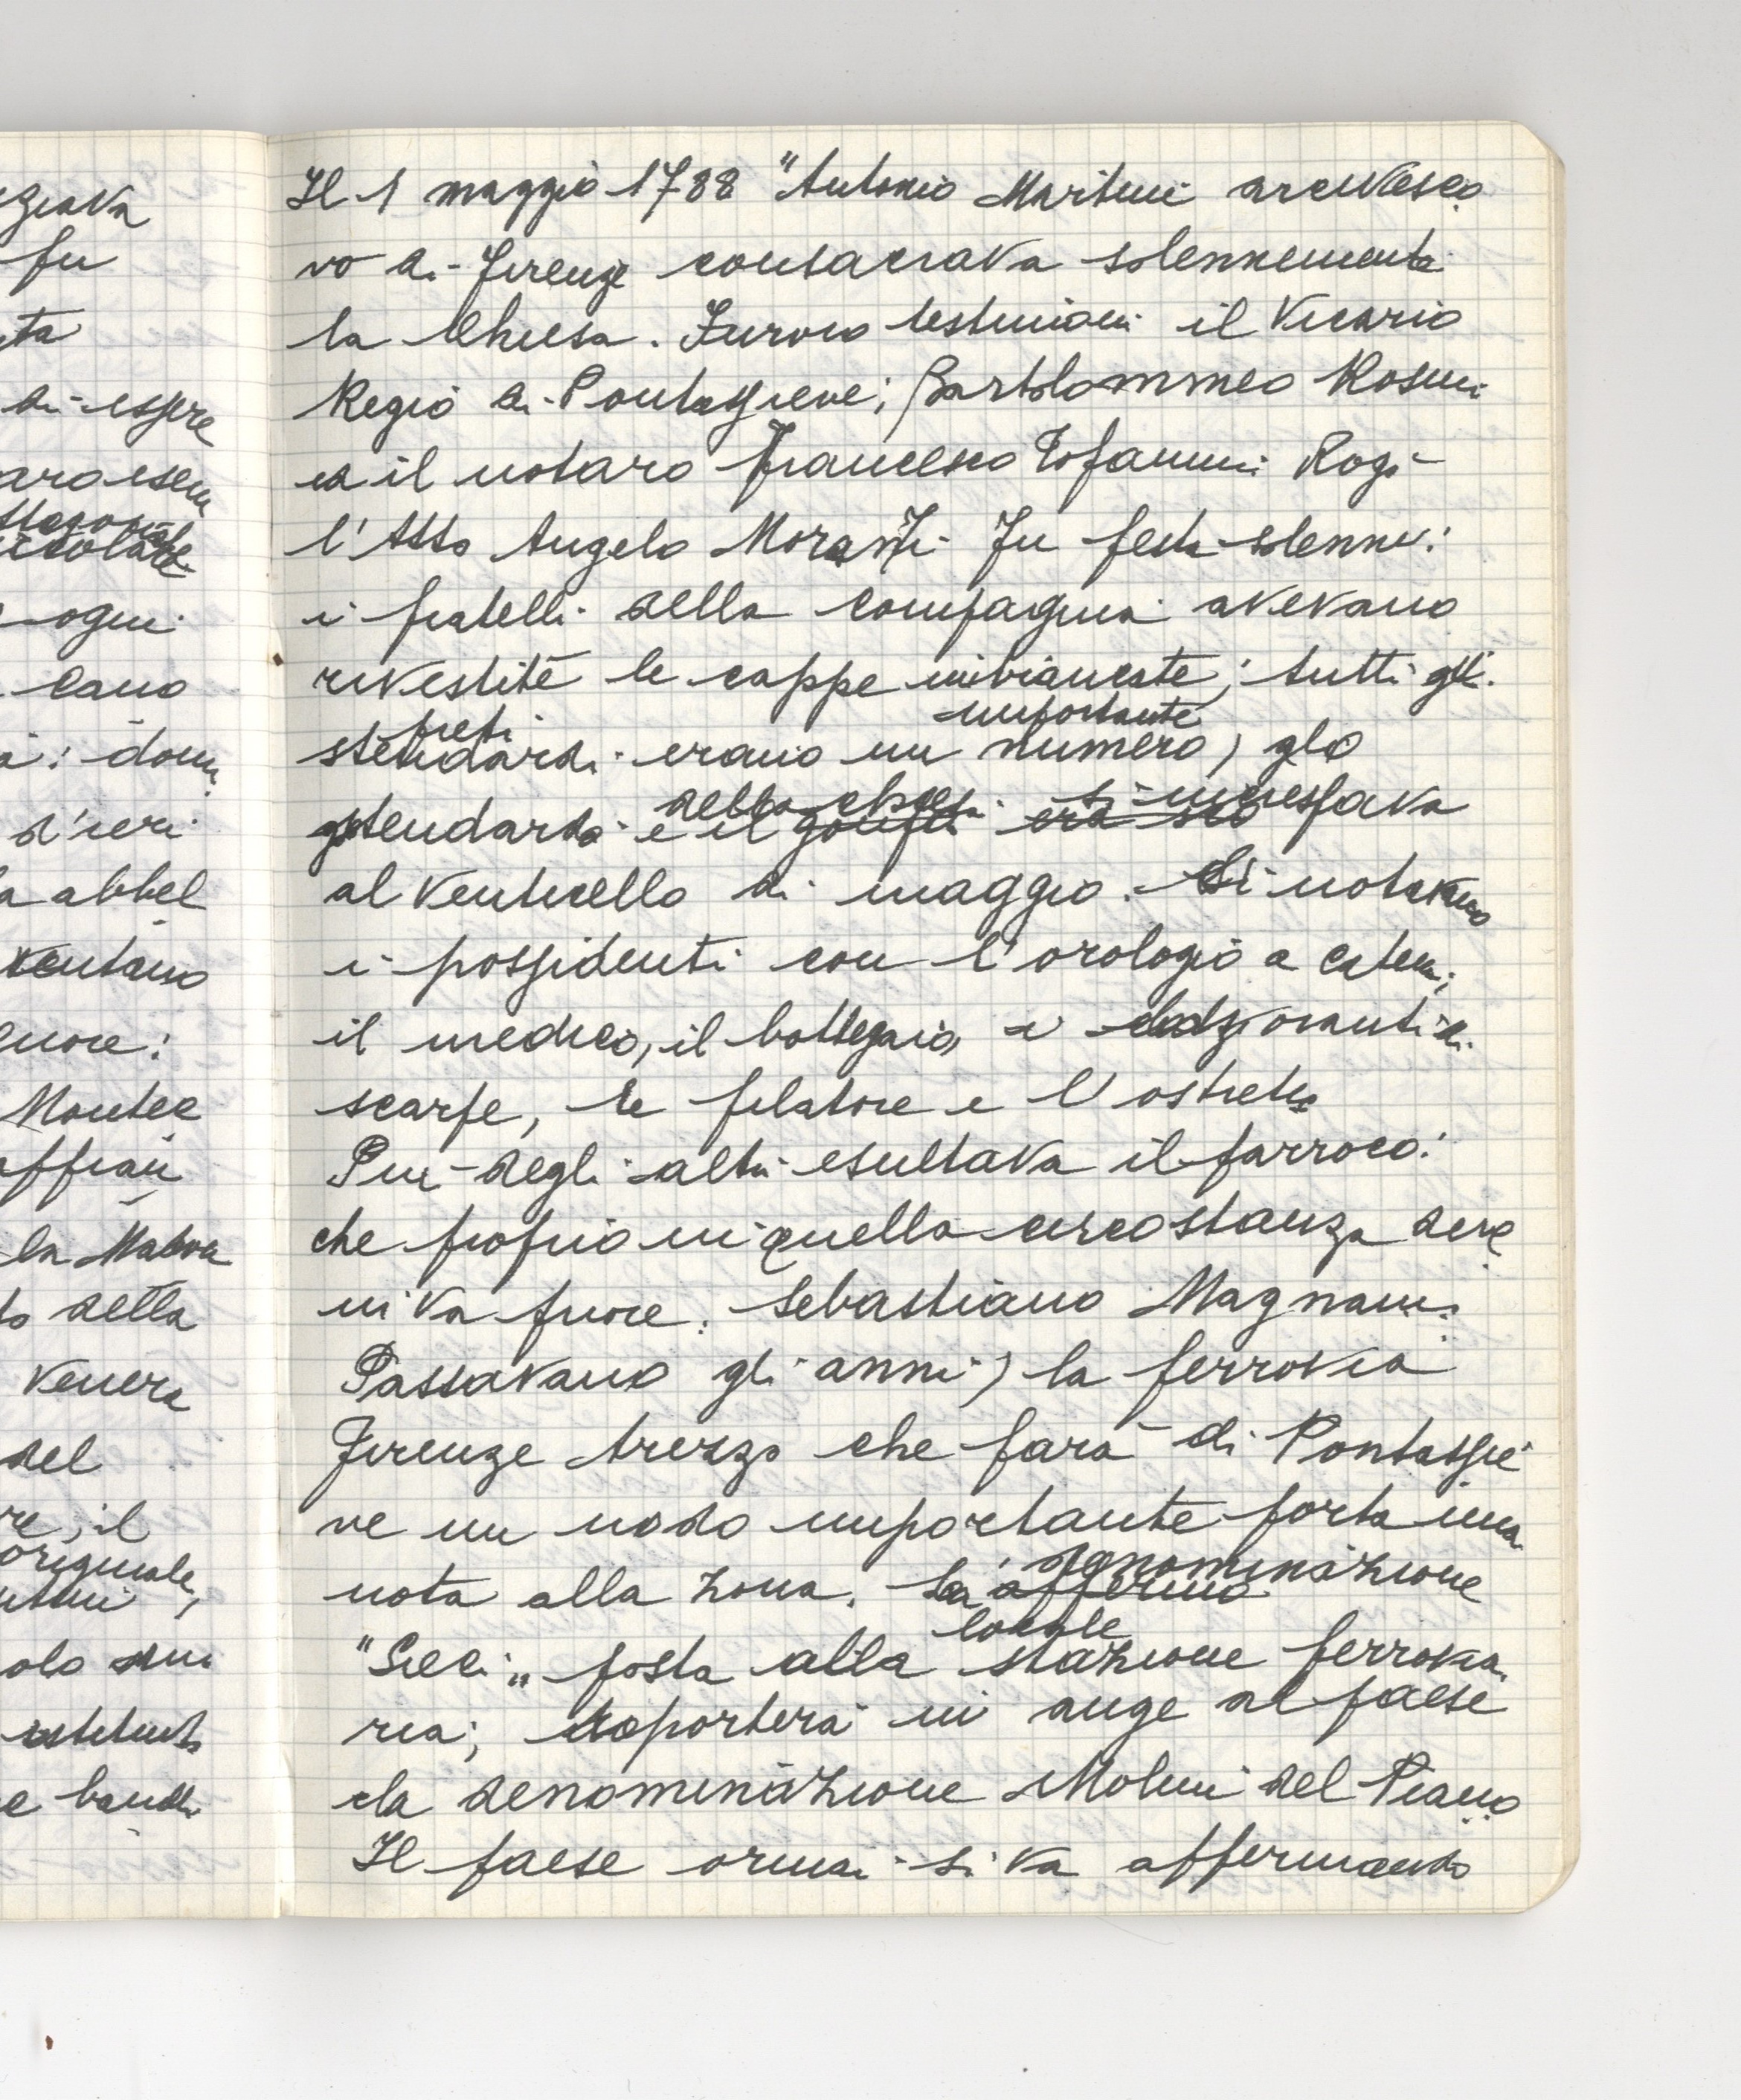 giava
fu
ta
di essere
ogni
cano
dom
d'ieri
abbel
ventano
Montec
la Madon
della
Venera
del
re, il
originale,
olo
e band
Il 1 maggio 1788 "Antonio Martini arcivesco
vo di Firenze consacrava solennemente
la Chiesa. Furono testimoni il Vicario
Regio di Pontassieve; Bartolommeo Rosini
ed il notaro Francesco Tofanini Rogò
l'Atto Angelo Morandi Fu festa solenne:
i fratelli della compagnia avevano
rivestite le cappe imbiancate; tutti gli
preti importante
stendardi erano un numero, glo
della chiesa si increspava
stendardo e il gonfa era sto
al venticello di maggio. Si notavano
i possidenti con l'orologio a catena,
il medico, il bottegaio, i di
scarpe, le filatore e l'ostetrica
Piu degli altri esultava il parroco:
che proprio in quella circostanza deve
niva priore: Sebastiano Magnani.
Passavano gli anni, la ferrovia
Firenze Arezzo che farà di Pontassie
ve un nodo importante porta una
denominazione
nota alla zona. La affermo
locale
"Sieci" posta alla stazione ferrovia
ria; riporterà in auge al paese
la denominazione Molini del Piano
Il paese ormai si va affermando